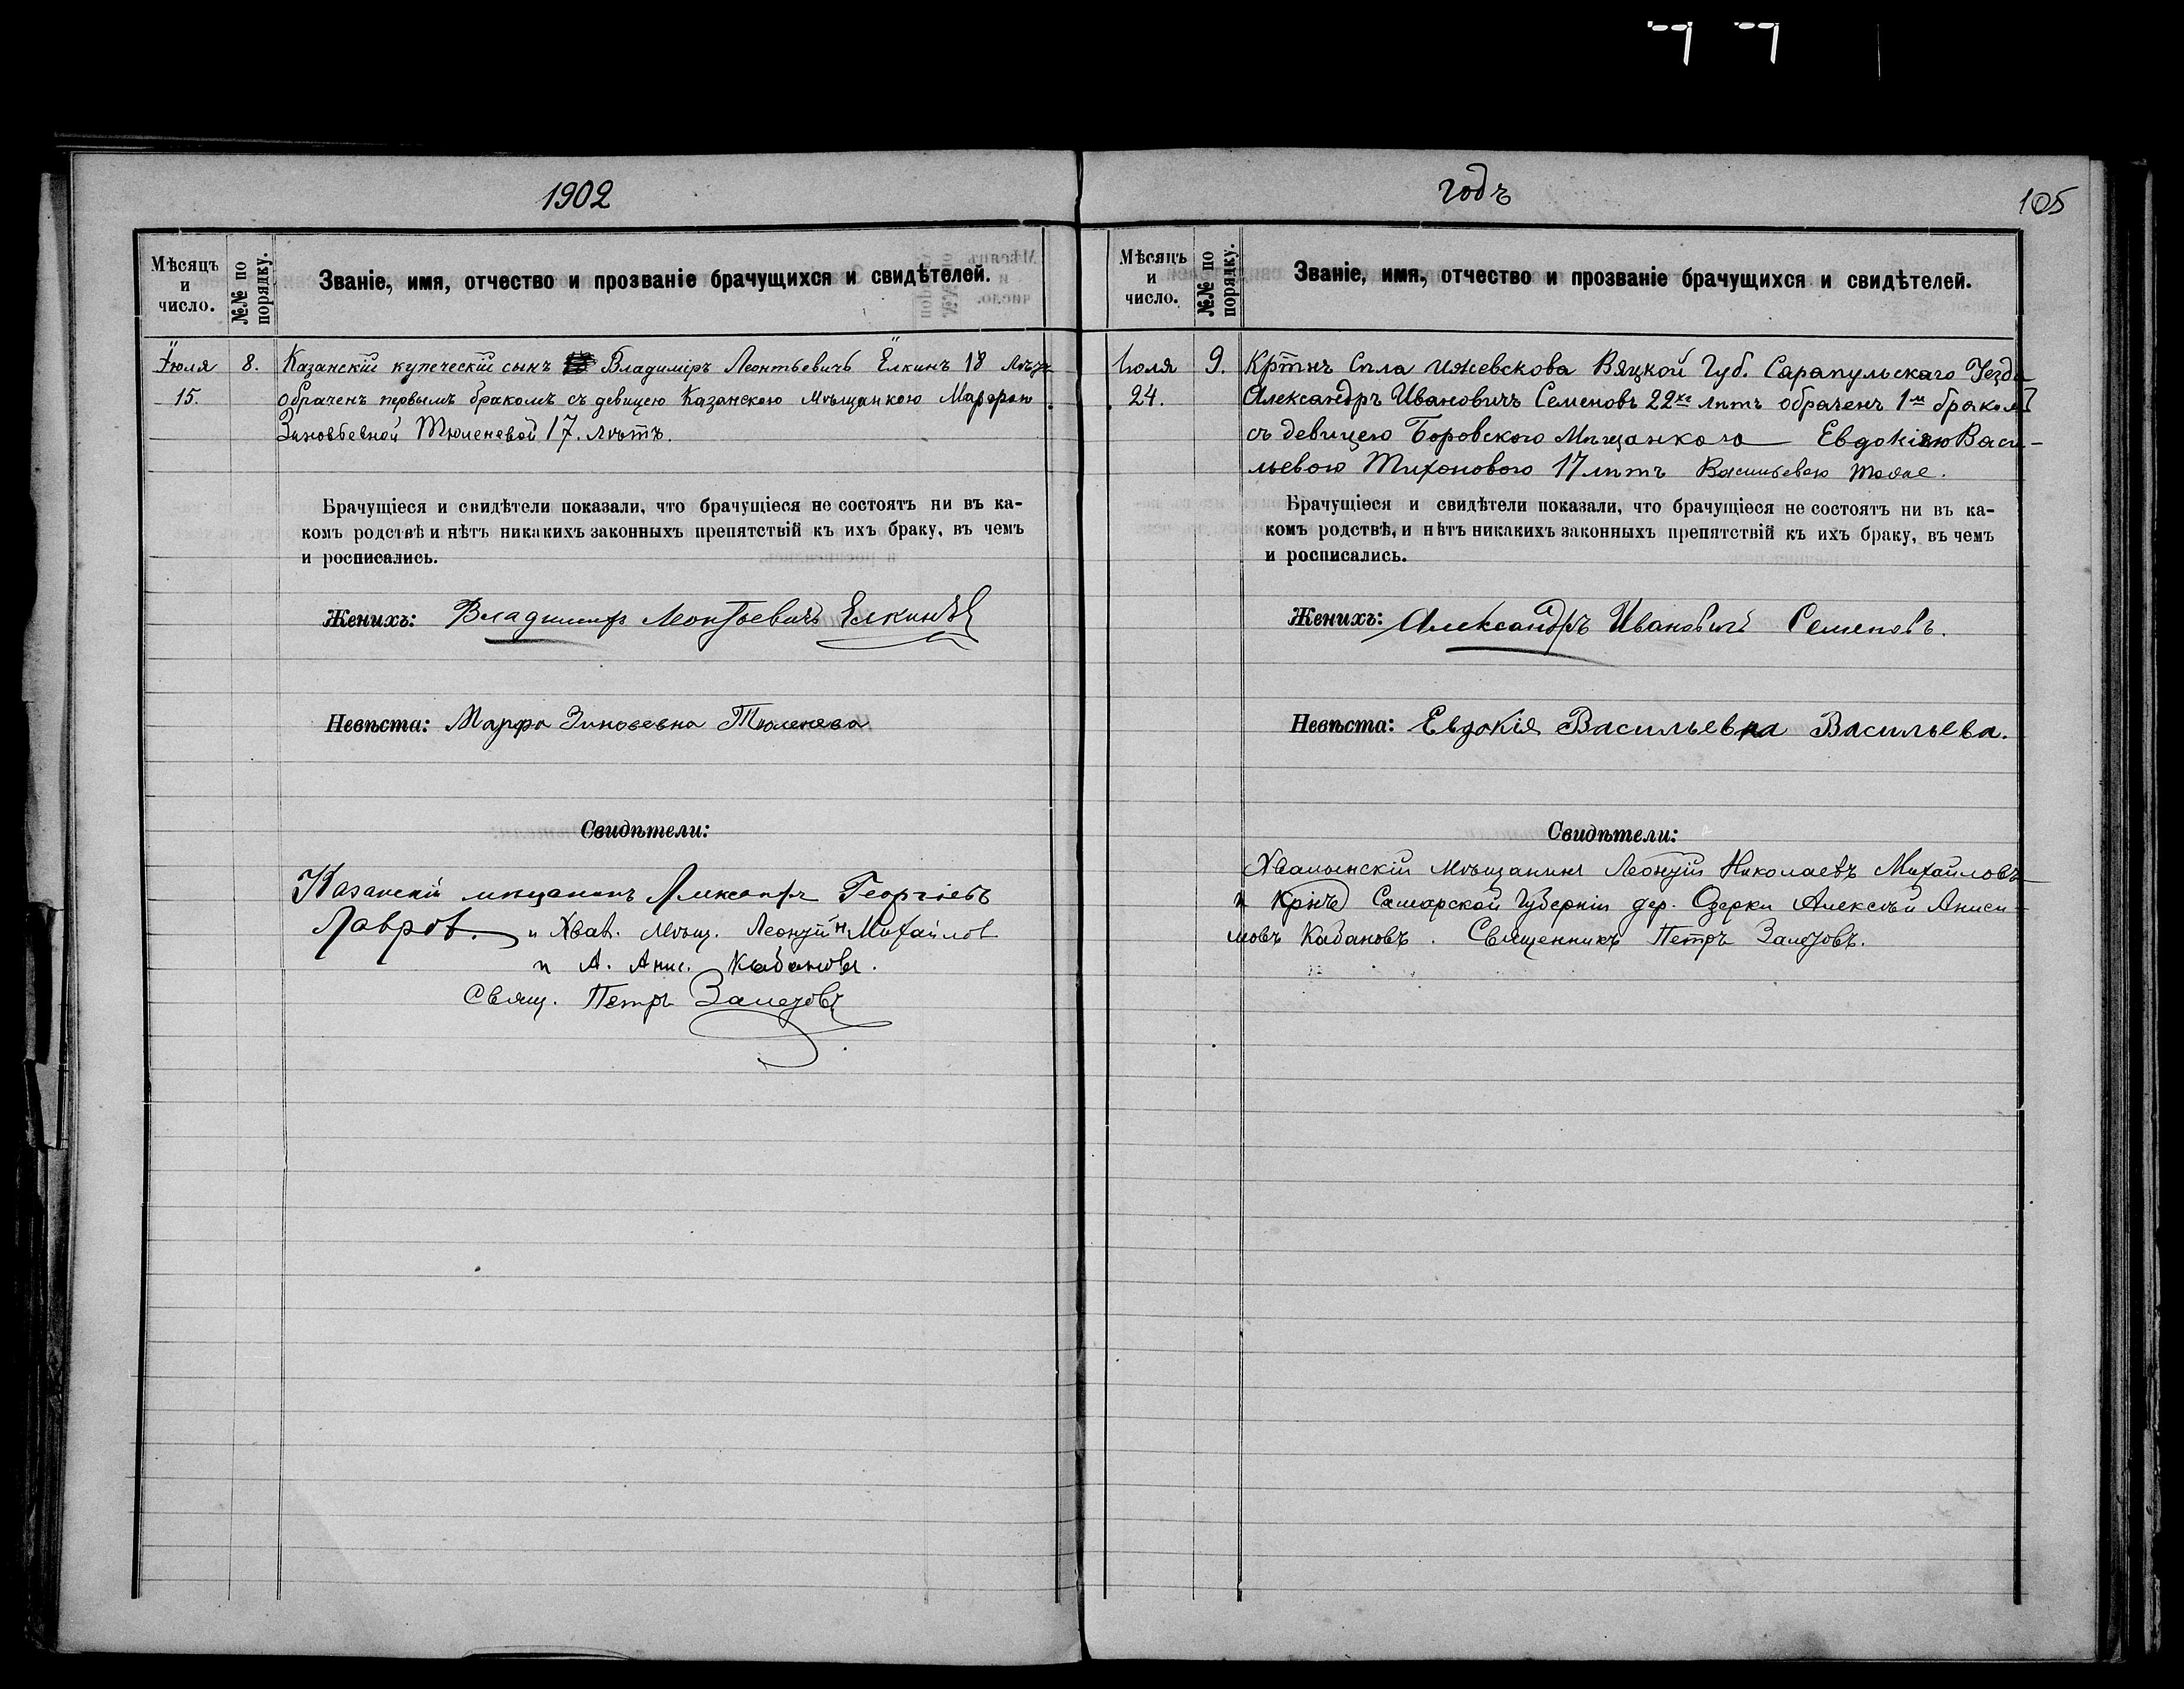 1902
Мѣсяцъ и число.
№№ по порядку.
Званіе, имя, отчество и прозваніе брачущихся и свидѣтелей.
Іюля 8. Казанскій купеческій сынъ Владиміръ Леонтьевичъ Ёлкинъ 18 лѣтъ
15. обраченъ первымъ бракомъ съ девицею Казанскою мѣщанкою Марфою
Зиновьевной Тюленевой 17. лѣтъ.
Брачущіеся и свидѣтели показали, что брачущіеся не состоятъ ни въ ка-
комъ родствѣ и нѣтъ никакихъ законныхъ препятствій къ ихъ браку, въ чемъ
и росписались.
Женихъ: Владимиръ Леонтьевичъ Елкинъ
Невѣста: Марфа Зиновевна Тюленева
Свидѣтели:
Казанскій мещанинъ Александръ Георгіевъ
Лавров. и Хвал. мѣщ. Леонтій Н. Михайлов
и А. Анис. Кабановъ.
Свящ. Петръ Залетовъ
годъ
105
Мѣсяцъ и число.
№№ по порядку.
Званіе, имя, отчество и прозваніе брачущихся и свидѣтелей.
Іюля 9. Крѣтнъ Села Ижевскова Вяцкой Губ. Сарапульскаго Уезда
24. Александръ Ивановичъ Семеновъ 22хъ лѣтъ обраченъ 1м браком
съ девицею Боровскою Мѣщанкою Евдокіяю Васи-
льевою Тихоновою 17 лѣтъ Васильевою тоже.
Брачущіеся и свидѣтели показали, что брачущіеся не состоятъ ни въ ка-
комъ родствѣ, и нѣтъ никакихъ законныхъ препятствій къ ихъ браку, въ чемъ
и росписались.
Женихъ: Александръ Ивановичъ Семеновъ.
Невѣста: Евдокія Васильевна Васильева.
Свидѣтели:
Хвалынскій мѣщанинъ Леонтій Николаевъ Михайловъ
и Самарской Губерніи дер. Озерки Алексѣй Аниси-
мовъ Кабановъ. Священникъ Петръ Залетовъ.